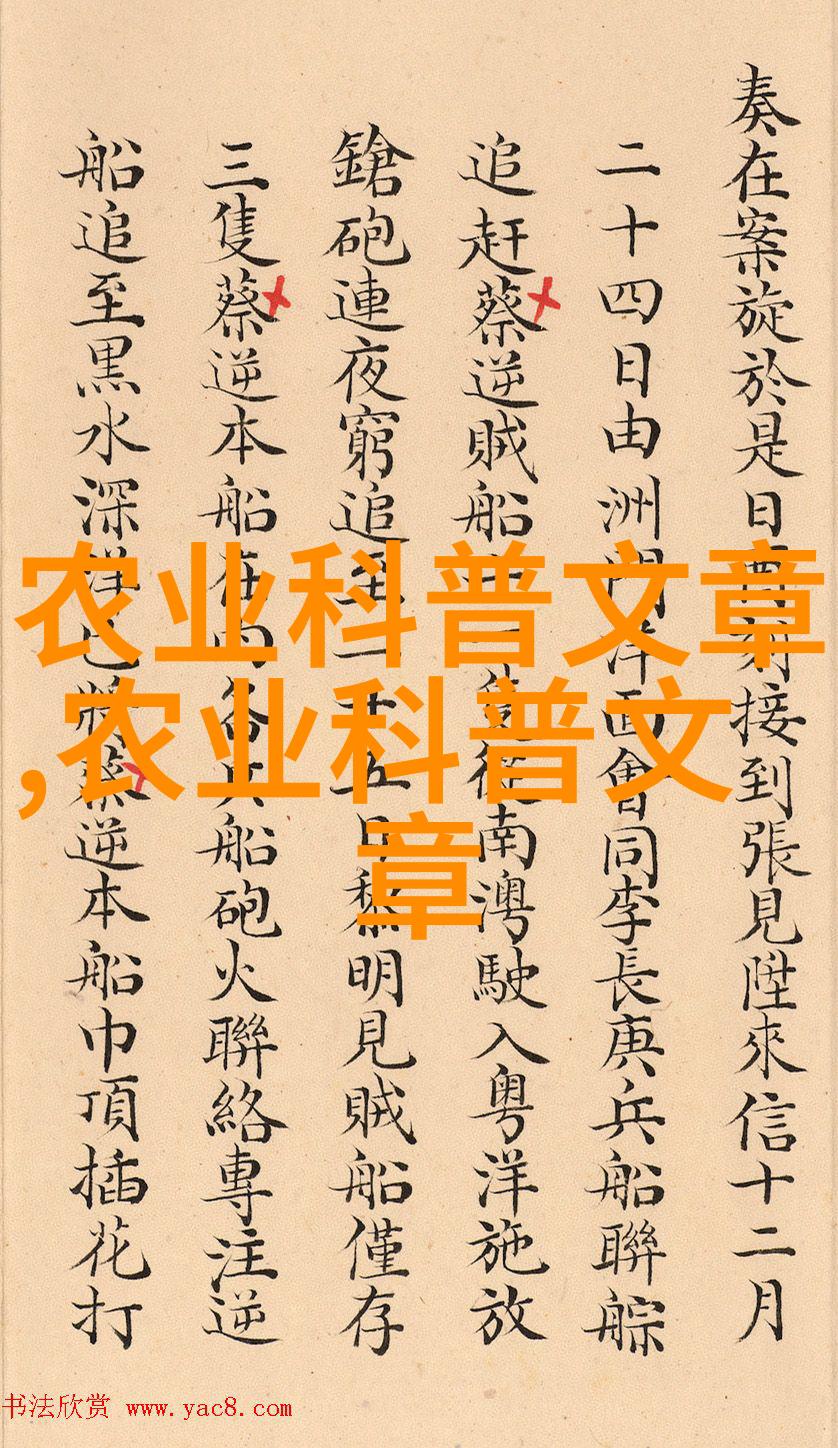 奏在案旋於是日酉刻接到張見陞來信十二月
二十四日由洲門洋面會同李長庚兵船聯䑸
追赶蔡逆賊船十一隻從南澳駛入粵洋施放
鎗砲連夜窮追至二十五日黎明見賊船僅存
三隻蔡逆本船在內各兵船砲火聯絡專注逆
船追至黒水深洋已將蔡逆本船巾頂插花打
农业科普文章
,农业科普文
章
书法欣赏 www.yac8.com